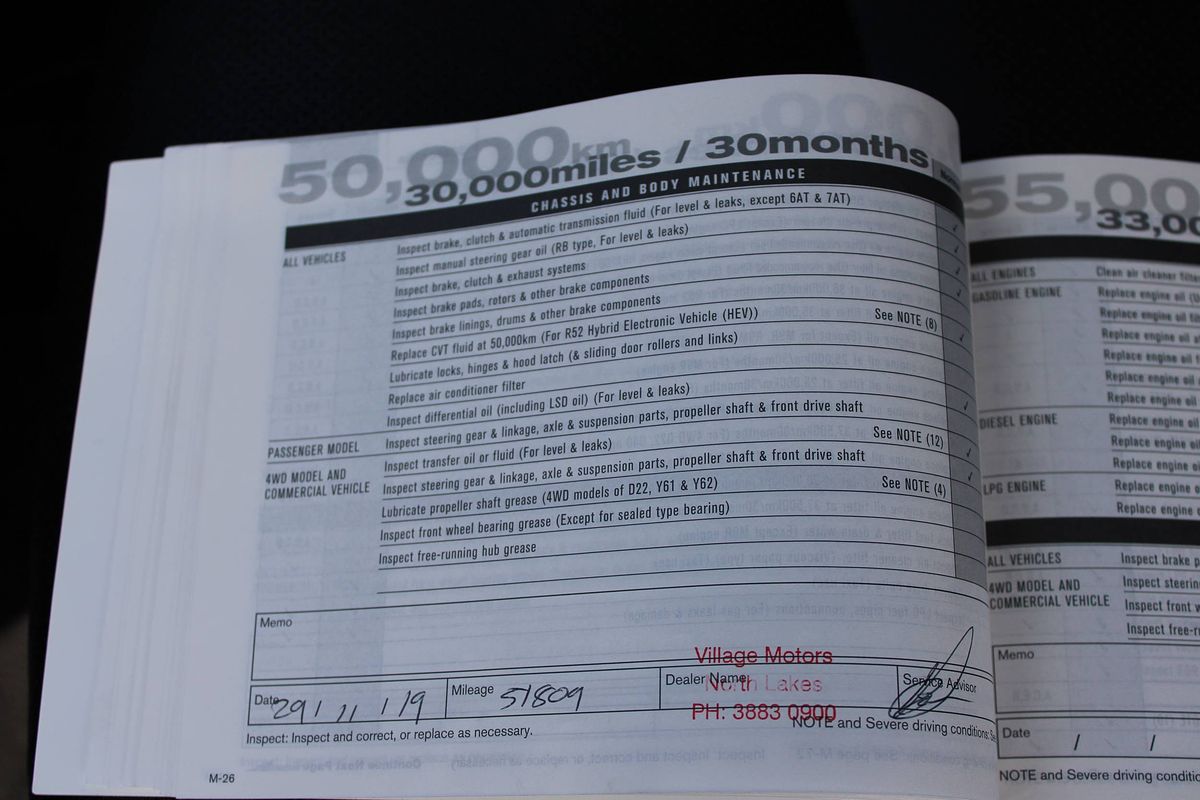 50,000km
30,000miles / 30months
CHASSIS AND BODY MAINTENANCE
ALL VEHICLES
Inspect brake, clutch & automatic transmission fluid (For level & leaks, except 6AT & 7AT)
Inspect manual steering gear oil (RB type, For level & leaks)
Inspect brake, clutch & exhaust systems
Inspect brake pads, rotors & other brake components
Inspect brake linings, drums & other brake components
Replace CVT fluid at 50,000km (For R52 Hybrid Electronic Vehicle (HEV)) See NOTE (8)
Lubricate locks, hinges & hood latch (& sliding door rollers and links)
Replace air conditioner filter
Inspect differential oil (including LSD oil) (For level & leaks)
PASSENGER MODEL Inspect steering gear & linkage, axle & suspension parts, propeller shaft & front drive shaft
4WD MODEL AND
COMMERCIAL VEHICLE
Inspect transfer oil or fluid (For level & leaks) See NOTE (12)
Inspect steering gear & linkage, axle & suspension parts, propeller shaft & front drive shaft
Lubricate propeller shaft grease (4WD models of D22, Y61 & Y62) See NOTE (4)
Inspect front wheel bearing grease (Except for sealed type bearing)
Inspect free-running hub grease
Memo
Date 29 / 11 / 19
Mileage 51809
Dealer Name
Village Motors
North Lakes
PH: 3883 0900
Service Advisor
Inspect: Inspect and correct, or replace as necessary.
NOTE and Severe driving conditions:
M-26
55,00
33,00
ALL ENGINES Clean air cleaner
GASOLINE ENGINE Replace engine oil
Replace engine oil
Replace engine oil
Replace engine oil
Replace engine oil
Replace engine oil
DIESEL ENGINE Replace engine
Replace engine
Replace engine
LPG ENGINE Replace engine
Replace engine
ALL VEHICLES Inspect brake
4WD MODEL AND
COMMERCIAL VEHICLE
Inspect
Inspect front
Inspect
Memo
Date / /
NOTE and Severe driving